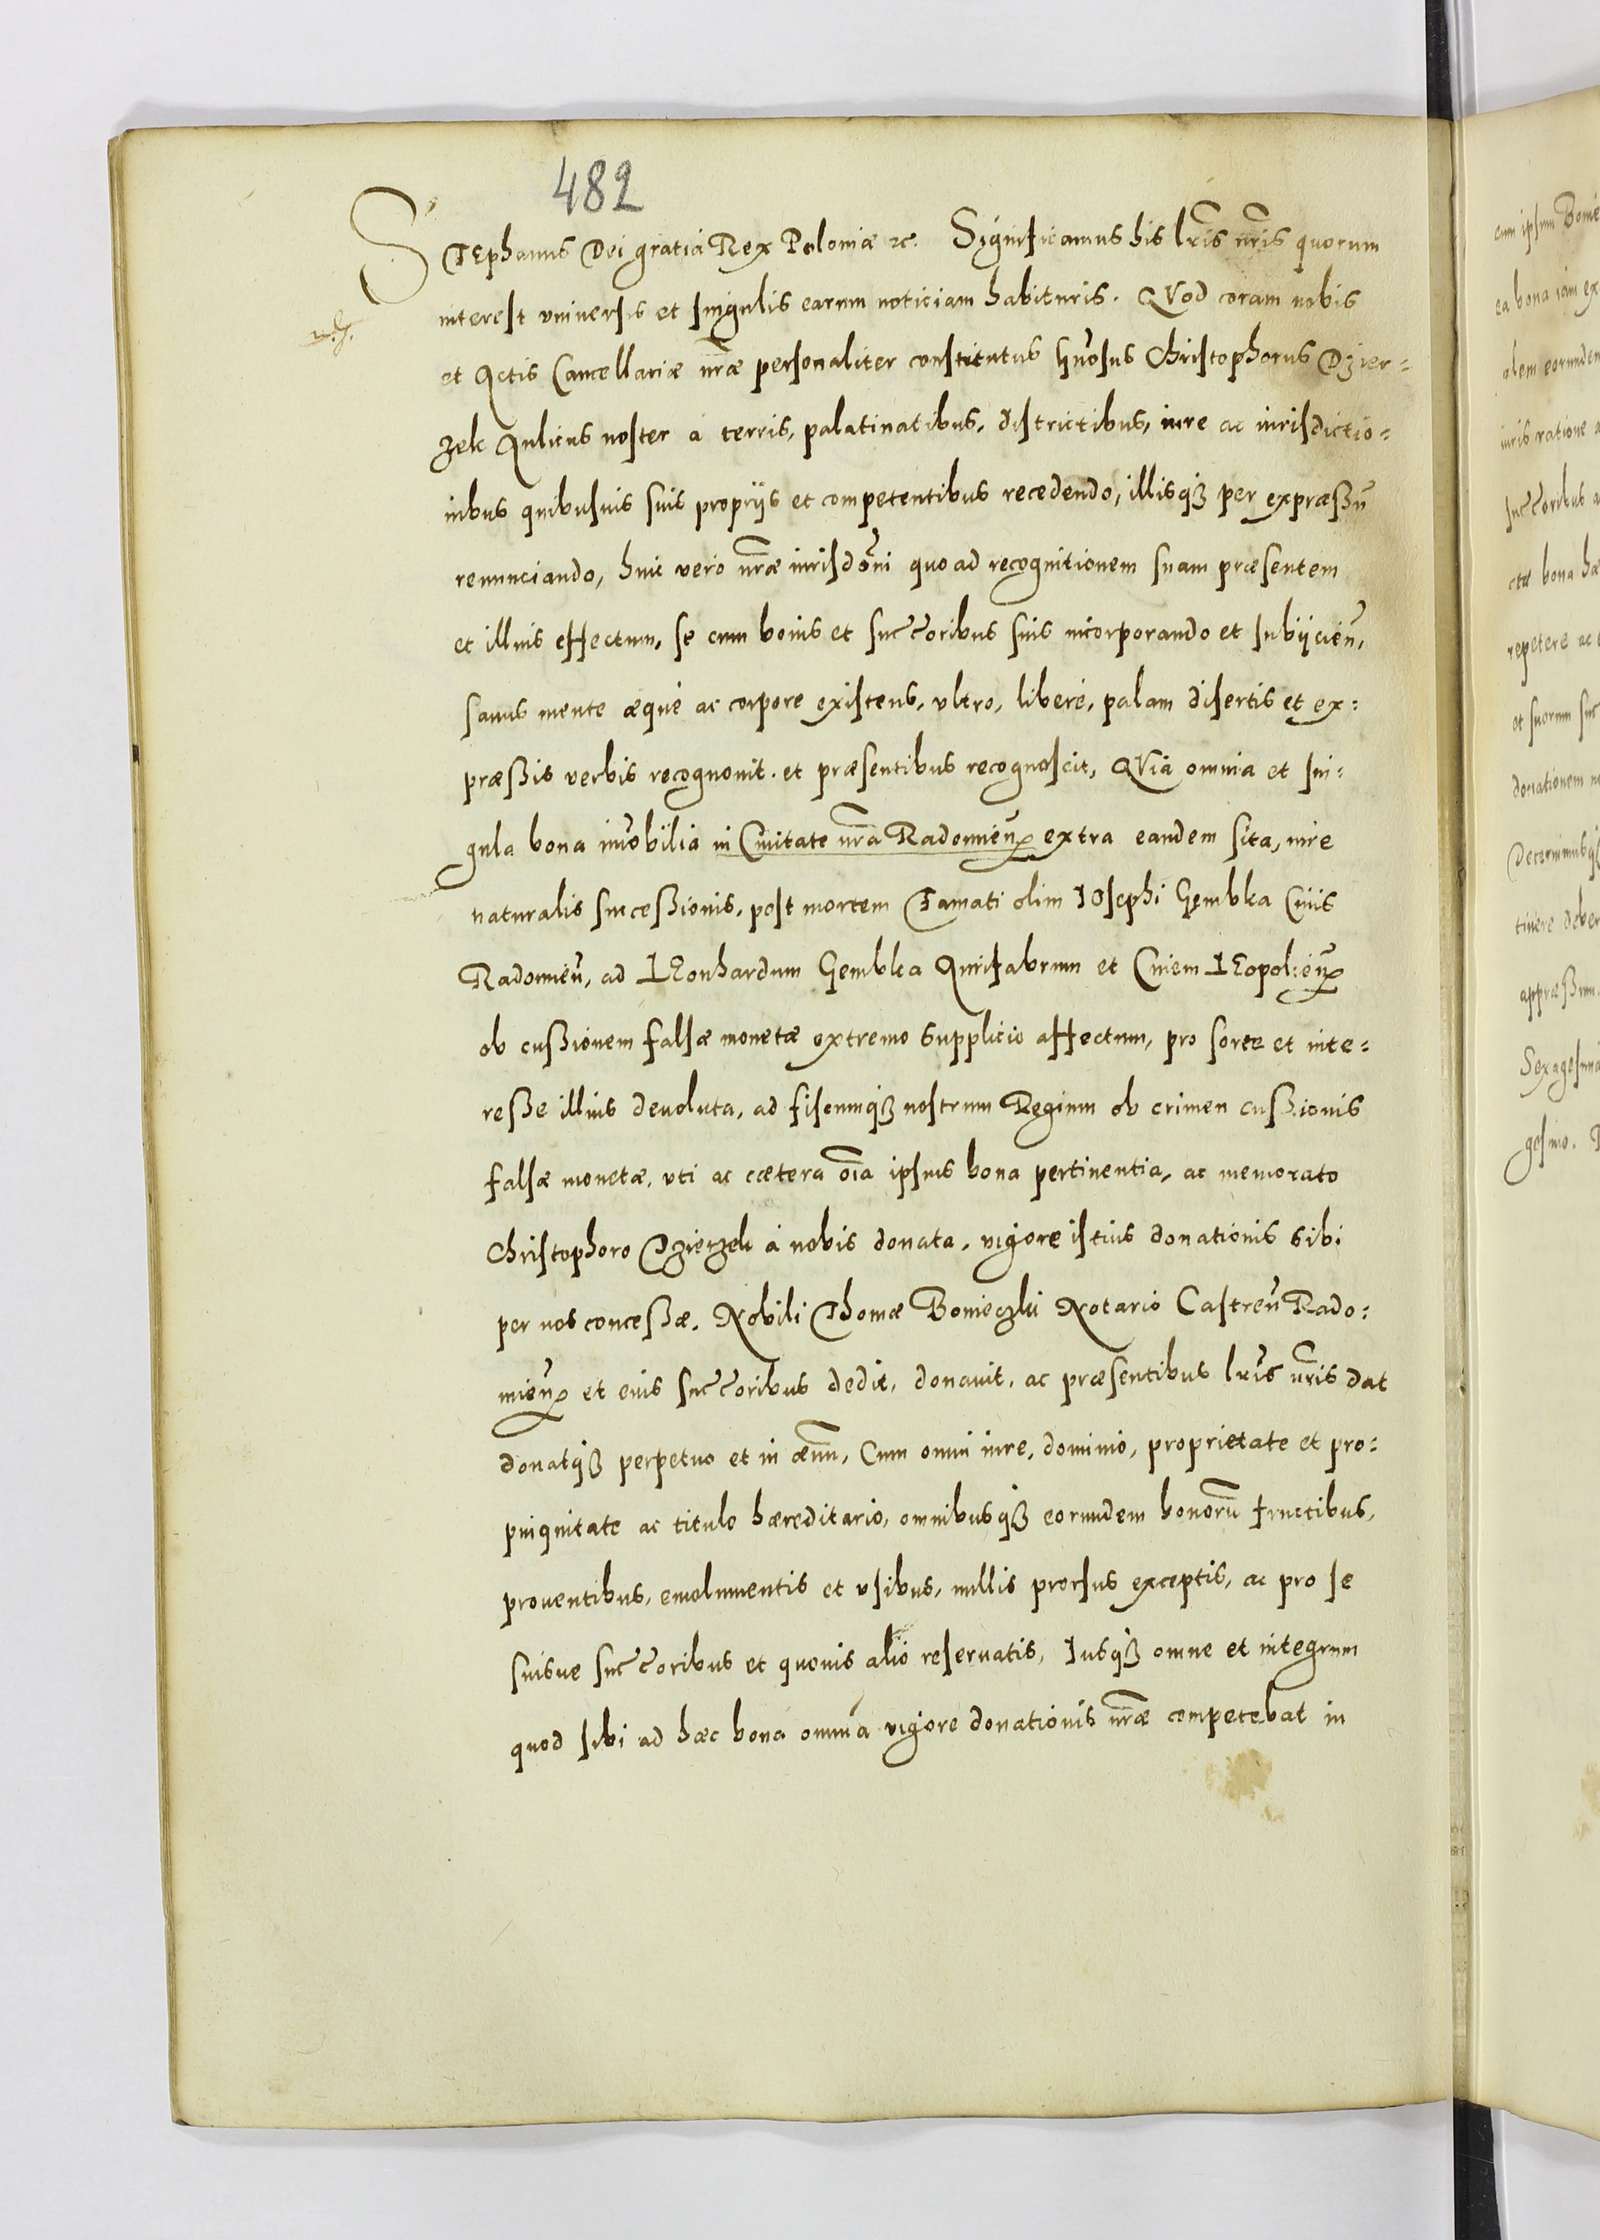 482
STEphanus Dei gratia Rex Poloniæ etc. Significamus his lris nris quorum
interest vniuersis et singulis earum noticiam habituris. QVod coram nobis
et Actis Cancellariæ nræ personaliter constitutus gnosus Christophorus Dzier=
zek Aulicus noster à terris, palatinatibus, districtibus, iure ac iurisdictio=
nibus quibusuis suis proprijs et competentibus recedendo, illisqß per expræßũ
renunciando, huic vero nræ iurisdõni quo ad recognitionem suam præsentem
et illius effectum, se cum bonis et succoribus suis incorporando et subijcieñ,
sanus mente æque ac corpore existens, vltro, liberè, palam disertis et ex=
præßis verbis recognouit. et præsentibus recognoscit, QVia omnia et sin=
gula bona imobilia in Ciuitate nra Radomieñ extra eandem sita, iure
naturalis succeßionis, post mortem Famati olim IOsephi Gęmbka Ciuis
Radomieñ, ad LEonhardum Gembka Aurifabrum et Ciuem LEopolieñ
ob cußionem falsæ monetæ extremo supplicio affectum, pro sorte et inte=
reße illius deuoluta, ad fiscumqß nostrum Regium ob crimen cußionis
falsæ monetæ, vti ac cætera oĩa ipsius bona pertinentia, ac memorato
Christophoro Dzierzek à nobis donata, vigore istius donationis sibi
per nos conceßæ. Nobili Thomæ Bonieczki Notario Castreñ Rado=
mieñ et eius succoribus dedit, donauit, ac præsentibus lris nris dat
donatqß perpetuo et in æuũ, Cum omni iure, dominio, proprietate et pro=
pinquitate ac titulo hæreditario, omnibusqß eorundem bonorũ fructibus,
prouentibus, emolumentis et vsibus, nullis prorsus exceptis, ac pro se
suisue succoribus et quouis alio reseruatis, Iusqß omne et integrum
quod sibi ad hæc bona omnia vigore donationis nræ competebat in
cum ipsum Bonie
ea bona iam ex
alem eorundem
iuris ratione
succoribus
bona hæ
repetere ac
et suorum suc
donationem
Decernimusqß
tinere deber
appræßum
Sexagesima
gesimo.